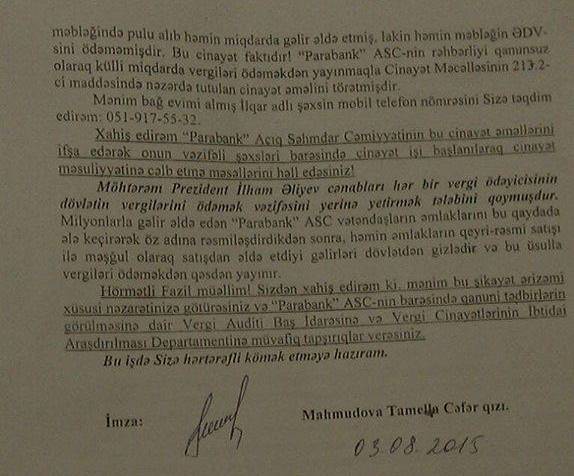 məbləğində pulu alıb həmin miqdarda gəlir əldə etmiş, lakin həmin məbləğin ƏDV-
sini ödəməmişdir. Bu cinayət faktıdır! “Parabank” ASC-nin rəhbərliyi qanunsuz
olaraq külli miqdarda vergiləri ödəməkdən yayınmaqla Cinayət Məcəlləsinin 213.2-
ci maddəsində nəzərdə tutulan cinayət əməlini törətmişdir.
Mənim bağ evimi almış İlqar adlı şəxsin mobil telefon nömrəsini Sizə təqdim
edirəm: 051-917-55-32.
Xahiş edirəm “Parabank” Açıq Səhmdar Cəmiyyətinin bu cinayət əməllərini
ifşa edərək onun vəzifəli şəxsləri barəsində cinayət işi başlanılaraq cinayət
məsuliyyətinə cəlb etmə məsəllərini həll edəsiniz!
Möhtərəm Prezident İlham Əliyev cənabları hər bir vergi ödəyicisinin
dövlətin vergilərini ödəmək vəzifəsini yerinə yetirmək tələbini qoymuşdur.
Milyonlarla gəlir əldə edən “Parabank” ASC vətəndaşların əmlaklarını bu qaydada
ələ keçirərək öz adına rəsmiləşdirdikdən sonra, həmin əmlakların qeyri-rəsmi satışı
ilə məşğul olaraq satışdan əldə etdiyi gəlirləri dövlətdən gizlədir və bu üsulla
vergiləri ödəməkdən qəsdən yayınır.
Hörmətli Fazil müəllim! Sizdən xahiş edirəm ki, mənim bu şikayət ərizəmi
xüsusi nəzarətinizə götürəsiniz və “Parabank” ASC-nin barəsində qanuni tədbirlərin
görülməsinə dair Vergi Auditi Baş İdarəsinə və Vergi Cinayətlərinin İbtidai
Araşdırılması Departamentinə müvafiq tapşırıqlar verəsiniz.
Bu işdə Sizə hərtərəfli kömək etməyə hazıram.
İmza:
Mahmudova Tamella Cəfər qızı.
03.08.2015